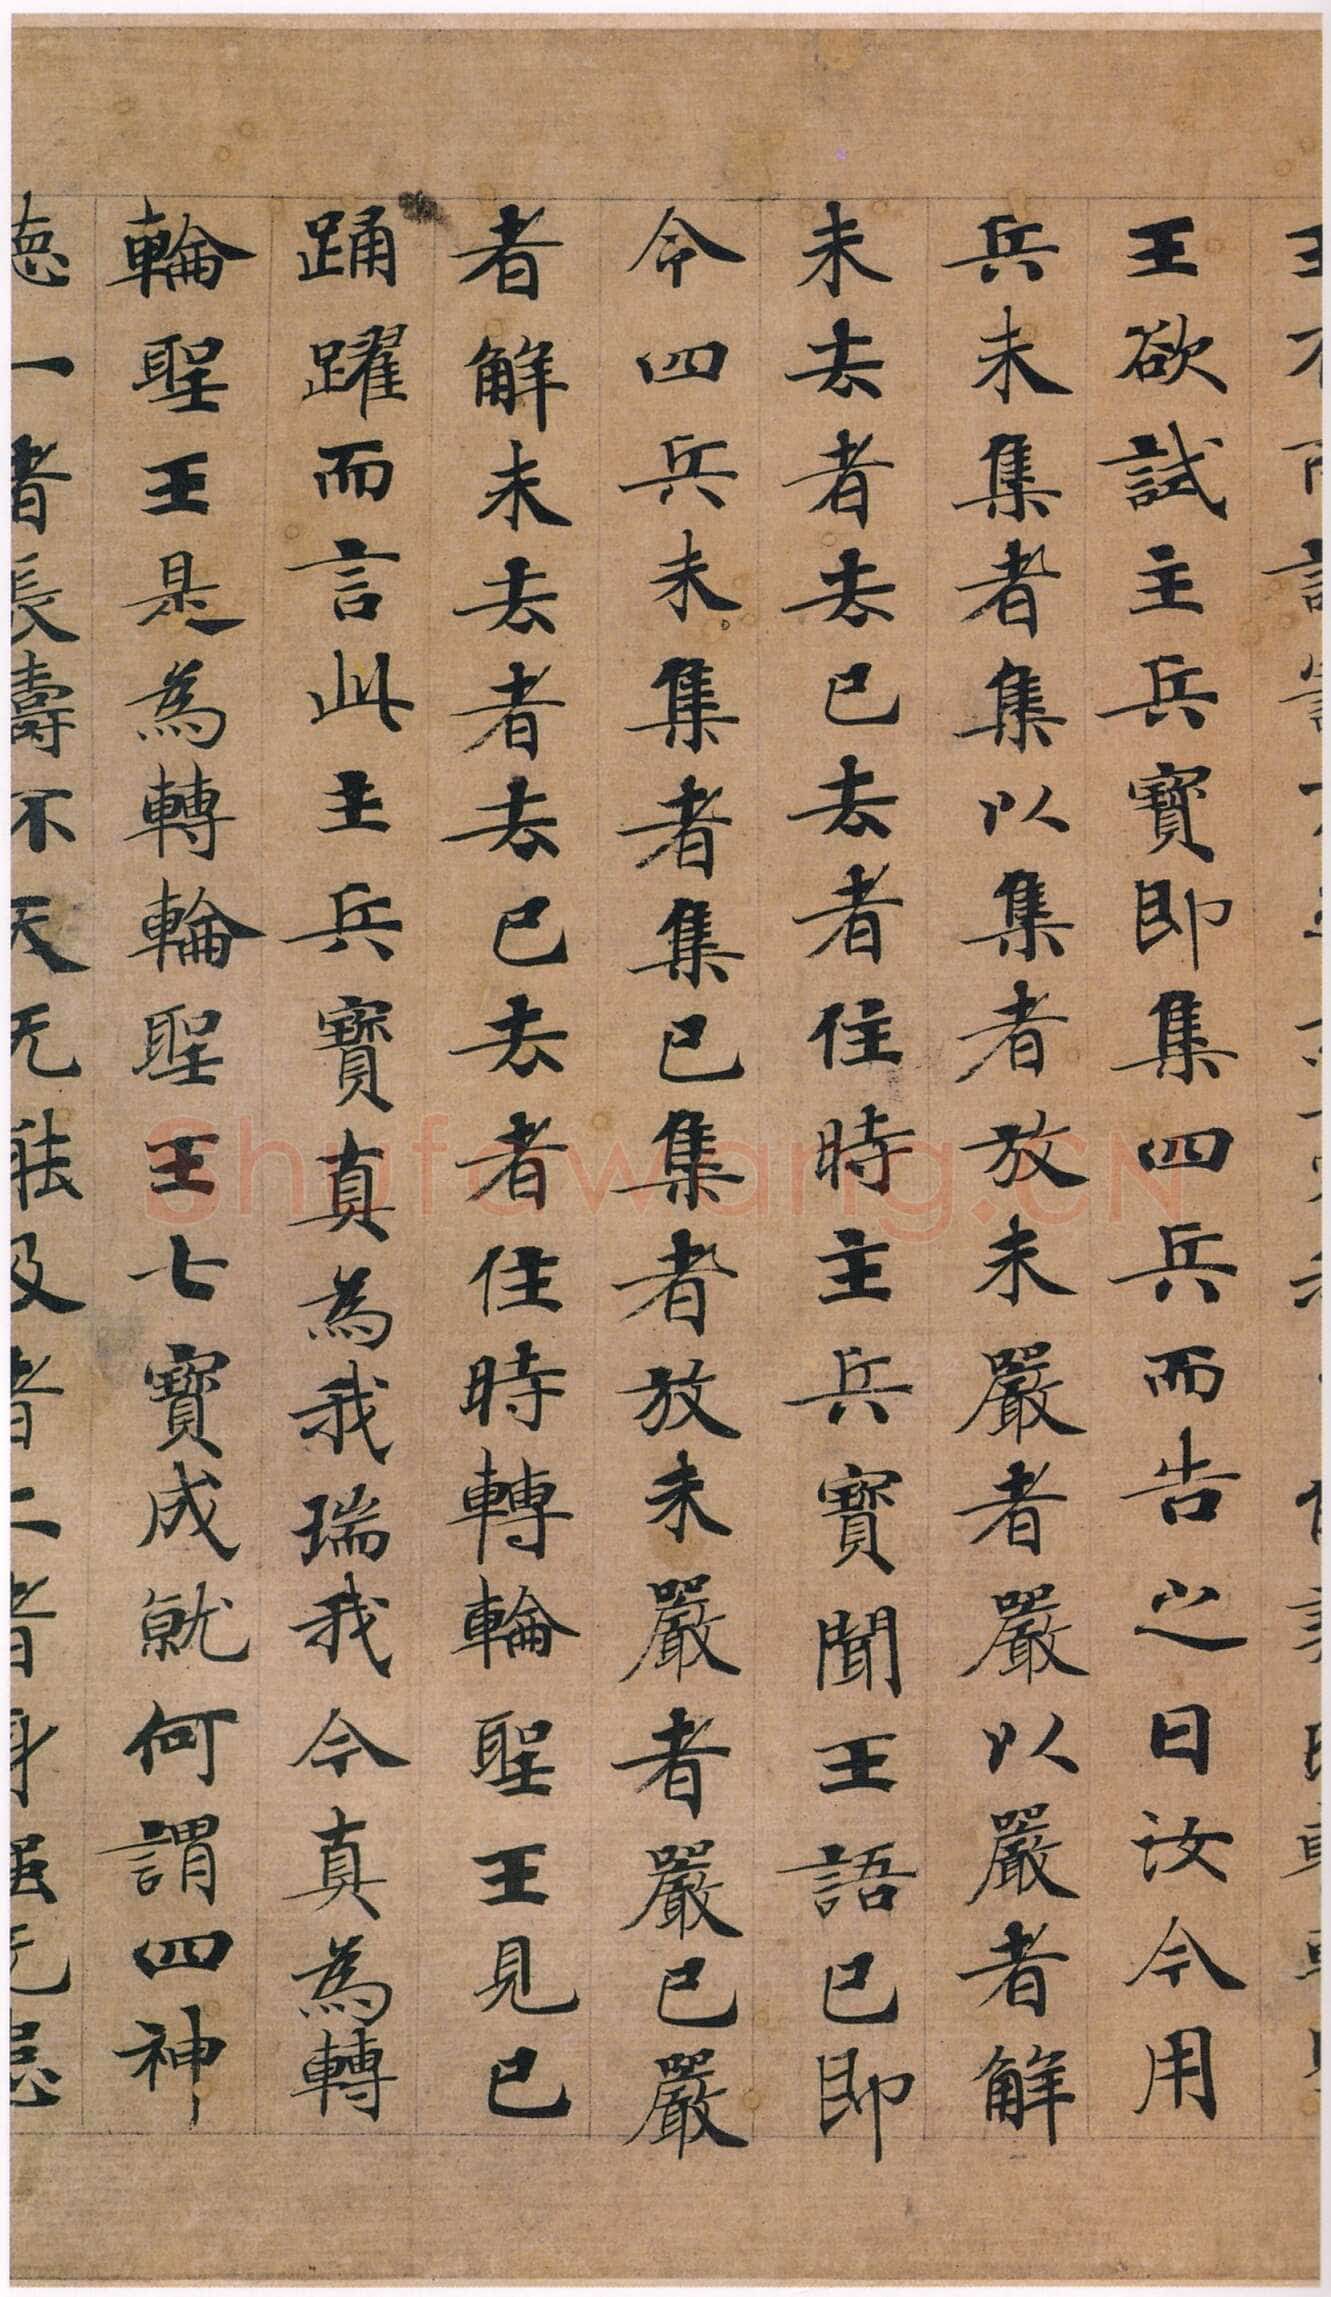 王欲試主兵寶即集四兵而告之曰汝今用
兵未集者集以集者放未嚴者嚴以嚴者解
未去者去已去者住時主兵寶聞王語已即
令四兵未集者集已集者放未嚴者嚴已嚴
者解未去者去已去者住時轉輪聖王見已
踊躍而言此主兵寶真為我瑞我今真為轉
輪聖王是為轉輪聖王七寶成就何謂四神
德一者長壽不夭无能及者二者身强无患
Shufawang.CN